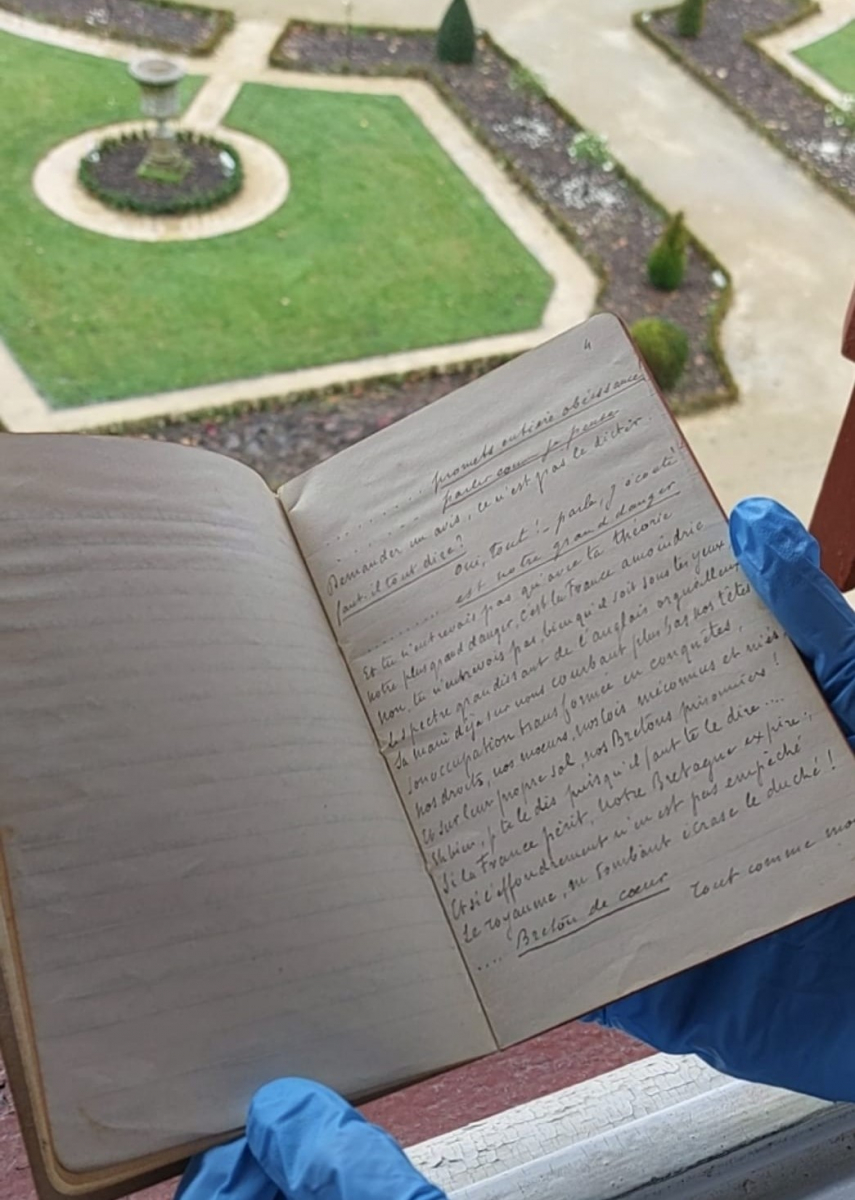 4
........ promets entière obéissance
........ parler comme je pense
Demander un avis, ce n'est pas le dicter.
faut-il tout dire?
Oui, tout! – parle, j'écoute!
........ est notre grand danger
Et tu n'entrevois pas qu'avec ta théorie
notre plus grand danger, c'est la France amoindrie
Non, tu n'entrevois pas, bien qu'il soit sous tes yeux
Le spectre grandissant de l'anglais orgueilleux
Sa main déjà sur nous courbant plus bas nos têtes
Son occupation transformée en conquêtes,
nos droits, nos mœurs, nos lois méconnus et niés,
Et sur leur propre sol, nos Bretons prisonniers!
Eh bien, je te le dis puisqu'il faut te le dire...
Si la France périt, notre Bretagne expire;
Et si l'effondrement n'en est pas empêché
Le royaume, en tombant écrase le duché!
.... Breton de cœur
Tout comme